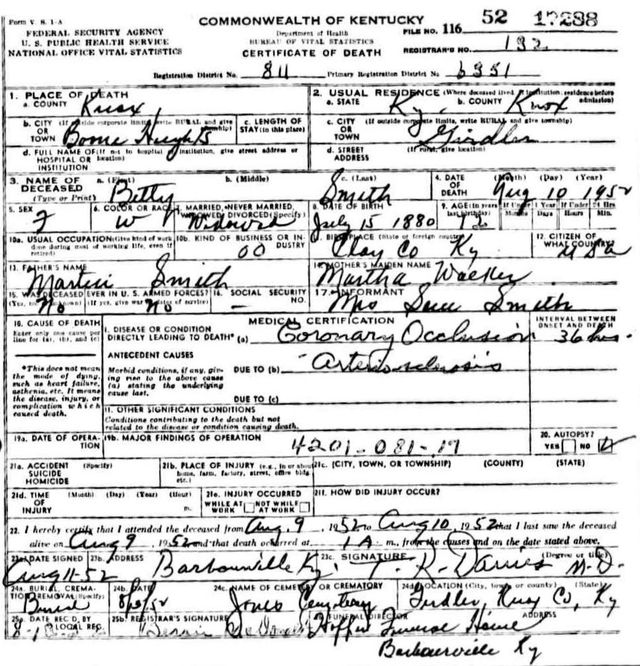 Form V. S. 1-A
FEDERAL SECURITY AGENCY
U. S. PUBLIC HEALTH SERVICE
NATIONAL OFFICE VITAL STATISTICS
COMMONWEALTH OF KENTUCKY
Department of Health
BUREAU OF VITAL STATISTICS
CERTIFICATE OF DEATH
FILE NO. 116 52 17288
REGISTRAR'S NO. 132
Registration District No. 811 Primary Registration District No. 6351
1. PLACE OF DEATH
a. COUNTY Knox
2. USUAL RESIDENCE (Where deceased lived. If institution: residence before admission)
a. STATE Ky. b. COUNTY Knox
b. CITY (If outside corporate limits, write RURAL and give township) OR TOWN
c. LENGTH OF STAY (in this place)
c. CITY (If outside corporate limits, write RURAL and give township) OR TOWN Girdler
d. FULL NAME OF (If not in hospital or institution, give street address or location) HOSPITAL OR INSTITUTION
d. STREET ADDRESS (If rural, give location)
3. NAME OF DECEASED (Type or Print) a. (First) Betty b. (Middle) c. (Last) Smith
4. DATE OF DEATH (Month) (Day) (Year) Aug 10 1952
5. SEX F
6. COLOR OR RACE W
7. MARRIED, NEVER MARRIED, WIDOWED, DIVORCED (Specify) Widowed
8. DATE OF BIRTH July 15 1880
9. AGE (In years last birthday) 72 If Under 1 Year Months Days If Under 24 Hrs Hours Min.
10a. USUAL OCCUPATION (Give kind of work done during most of working life, even if retired)
10b. KIND OF BUSINESS OR INDUSTRY 00
11. BIRTHPLACE (State or foreign country) Clay Co Ky
12. CITIZEN OF WHAT COUNTRY? USA
13. FATHER'S NAME Martin Smith
14. MOTHER'S MAIDEN NAME Martha Walker
15. WAS DECEASED EVER IN U. S. ARMED FORCES? (Yes, no, or unknown) (If yes, give war or dates of service) No No
16. SOCIAL SECURITY NO. —
17. INFORMANT Mrs Smith
18. CAUSE OF DEATH
Enter only one cause per line for (a), (b), and (c)
MEDICAL CERTIFICATION
INTERVAL BETWEEN ONSET AND DEATH
I. DISEASE OR CONDITION DIRECTLY LEADING TO DEATH* (a) Coronary Occlusion 36 hrs.
*This does not mean the mode of dying, such as heart failure, asthenia, etc. It means the disease, injury, or complication which caused death.
ANTECEDENT CAUSES
Morbid conditions, if any, giving rise to the above cause (a) stating the underlying cause last.
DUE TO (b) Arteriosclerosis
DUE TO (c)
II. OTHER SIGNIFICANT CONDITIONS
Conditions contributing to the death but not related to the disease or condition causing death.
19a. DATE OF OPERATION
19b. MAJOR FINDINGS OF OPERATION
4201-081-17
20. AUTOPSY? YES NO
21a. ACCIDENT SUICIDE HOMICIDE (Specify)
21b. PLACE OF INJURY (e.g., in or about home, farm, factory, street, office bldg., etc.)
21c. (CITY, TOWN, OR TOWNSHIP) (COUNTY) (STATE)
21d. TIME OF INJURY (Month) (Day) (Year) (Hour) m.
21e. INJURY OCCURRED WHILE AT WORK NOT WHILE AT WORK
21f. HOW DID INJURY OCCUR?
22. I hereby certify that I attended the deceased from Aug. 9 1952 to Aug 10, 1952 that I last saw the deceased
alive on Aug 9 1952 and that death occurred at 1 A m., from the causes and on the date stated above.
23a. DATE SIGNED Aug 11-52
23b. ADDRESS Barbourville Ky
23c. SIGNATURE (Degree or title) R. Davies M.D.
24a. BURIAL, CREMATION, REMOVAL (Specify) Burial
24b. DATE
24c. NAME OF CEMETERY OR CREMATORY Jones Cemetery
24d. LOCATION (City, town, or county) (State) Girdler, Knox Co, Ky
25a. REC'D BY LOCAL REG.
25b. REGISTRAR'S SIGNATURE
FUNERAL DIRECTOR ADDRESS Funeral Home
Barbourville Ky